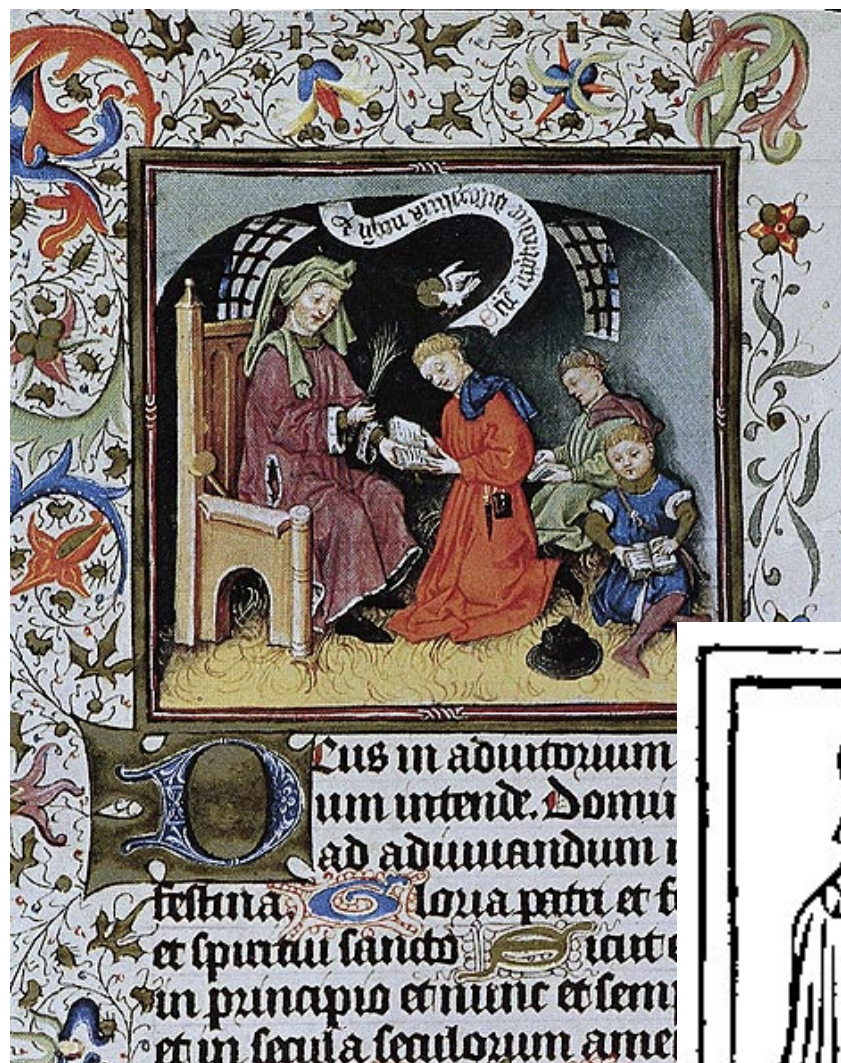 disciplina
Deus in adiutorium
um intende. Domi
ad adiuuandum
festina. Gloria patri et f
et spiritui sancto Sicut e
in principio et nunc et sem
et in secula seculorum ame